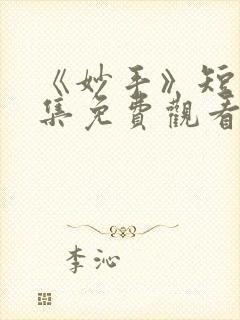 《妙手》短
集免費觀看
李沁